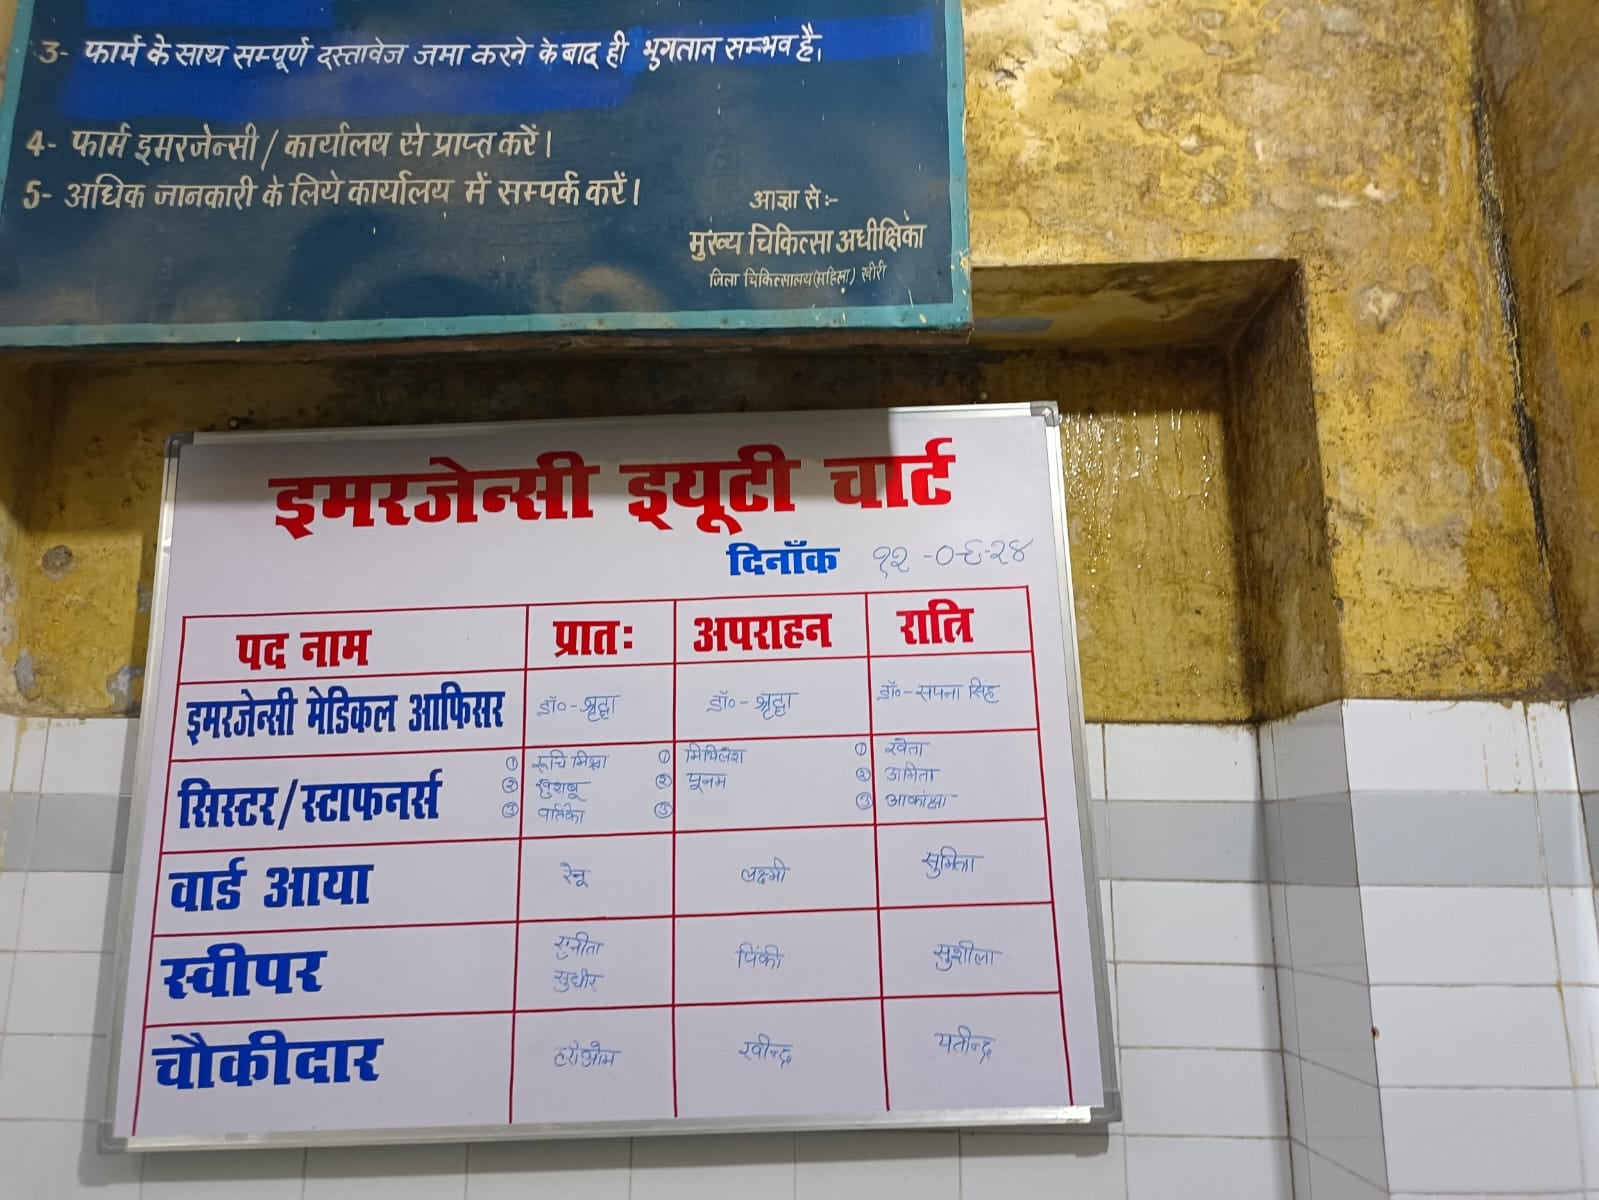 3- फार्म के साथ सम्पूर्ण दस्तावेज जमा करने के बाद ही भुगतान सम्भव है।
4- फार्म इमरजेन्सी / कार्यालय से प्राप्त करें।
5- अधिक जानकारी के लिये कार्यालय में सम्पर्क करें।
आज्ञा से:-
मुख्य चिकित्सा अधीक्षिका
जिला चिकित्सालय (महिला) खीरी
इमरजेन्सी ड्यूटी चार्ट
दिनाँक १२-०६-२४
पद नाम प्रातः अपराहन रात्रि
इमरजेन्सी मेडिकल आफिसर डॉ०-श्रृद्धा डॉ०-श्रृद्धा डॉ०-सपना सिंह
सिस्टर/स्टाफनर्स
① रूचि मिश्रा ① मिथिलेश ① श्वेता
② खुशबू ② पूनम ② अमिता
③ वर्तिका ③ ③ आकांक्षा
वार्ड आया रेनू लक्ष्मी सुमिता
स्वीपर सुनीता पिंकी सुशीला
सुधीर
चौकीदार हरीओम रवीन्द्र यतीन्द्र